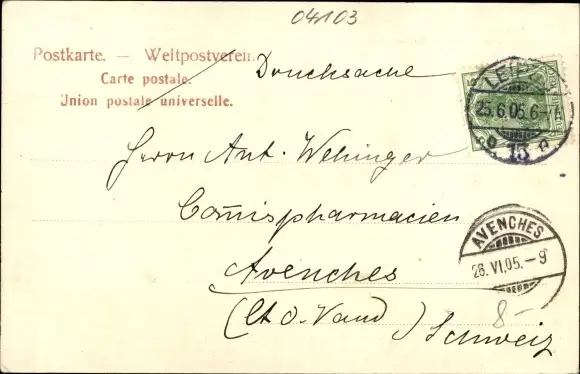 04103
Postkarte. — Weltpostverein.
Carte postale.
Union postale universelle.
Drucksache
LEIPZ
25.6.05.6-7
13
Herrn Ant. Wehinger
Com̅ispharmacien
AVENCHES
26.VI.05.–9
Avenches
(Ct. d. Vaud) Schweiz
8-